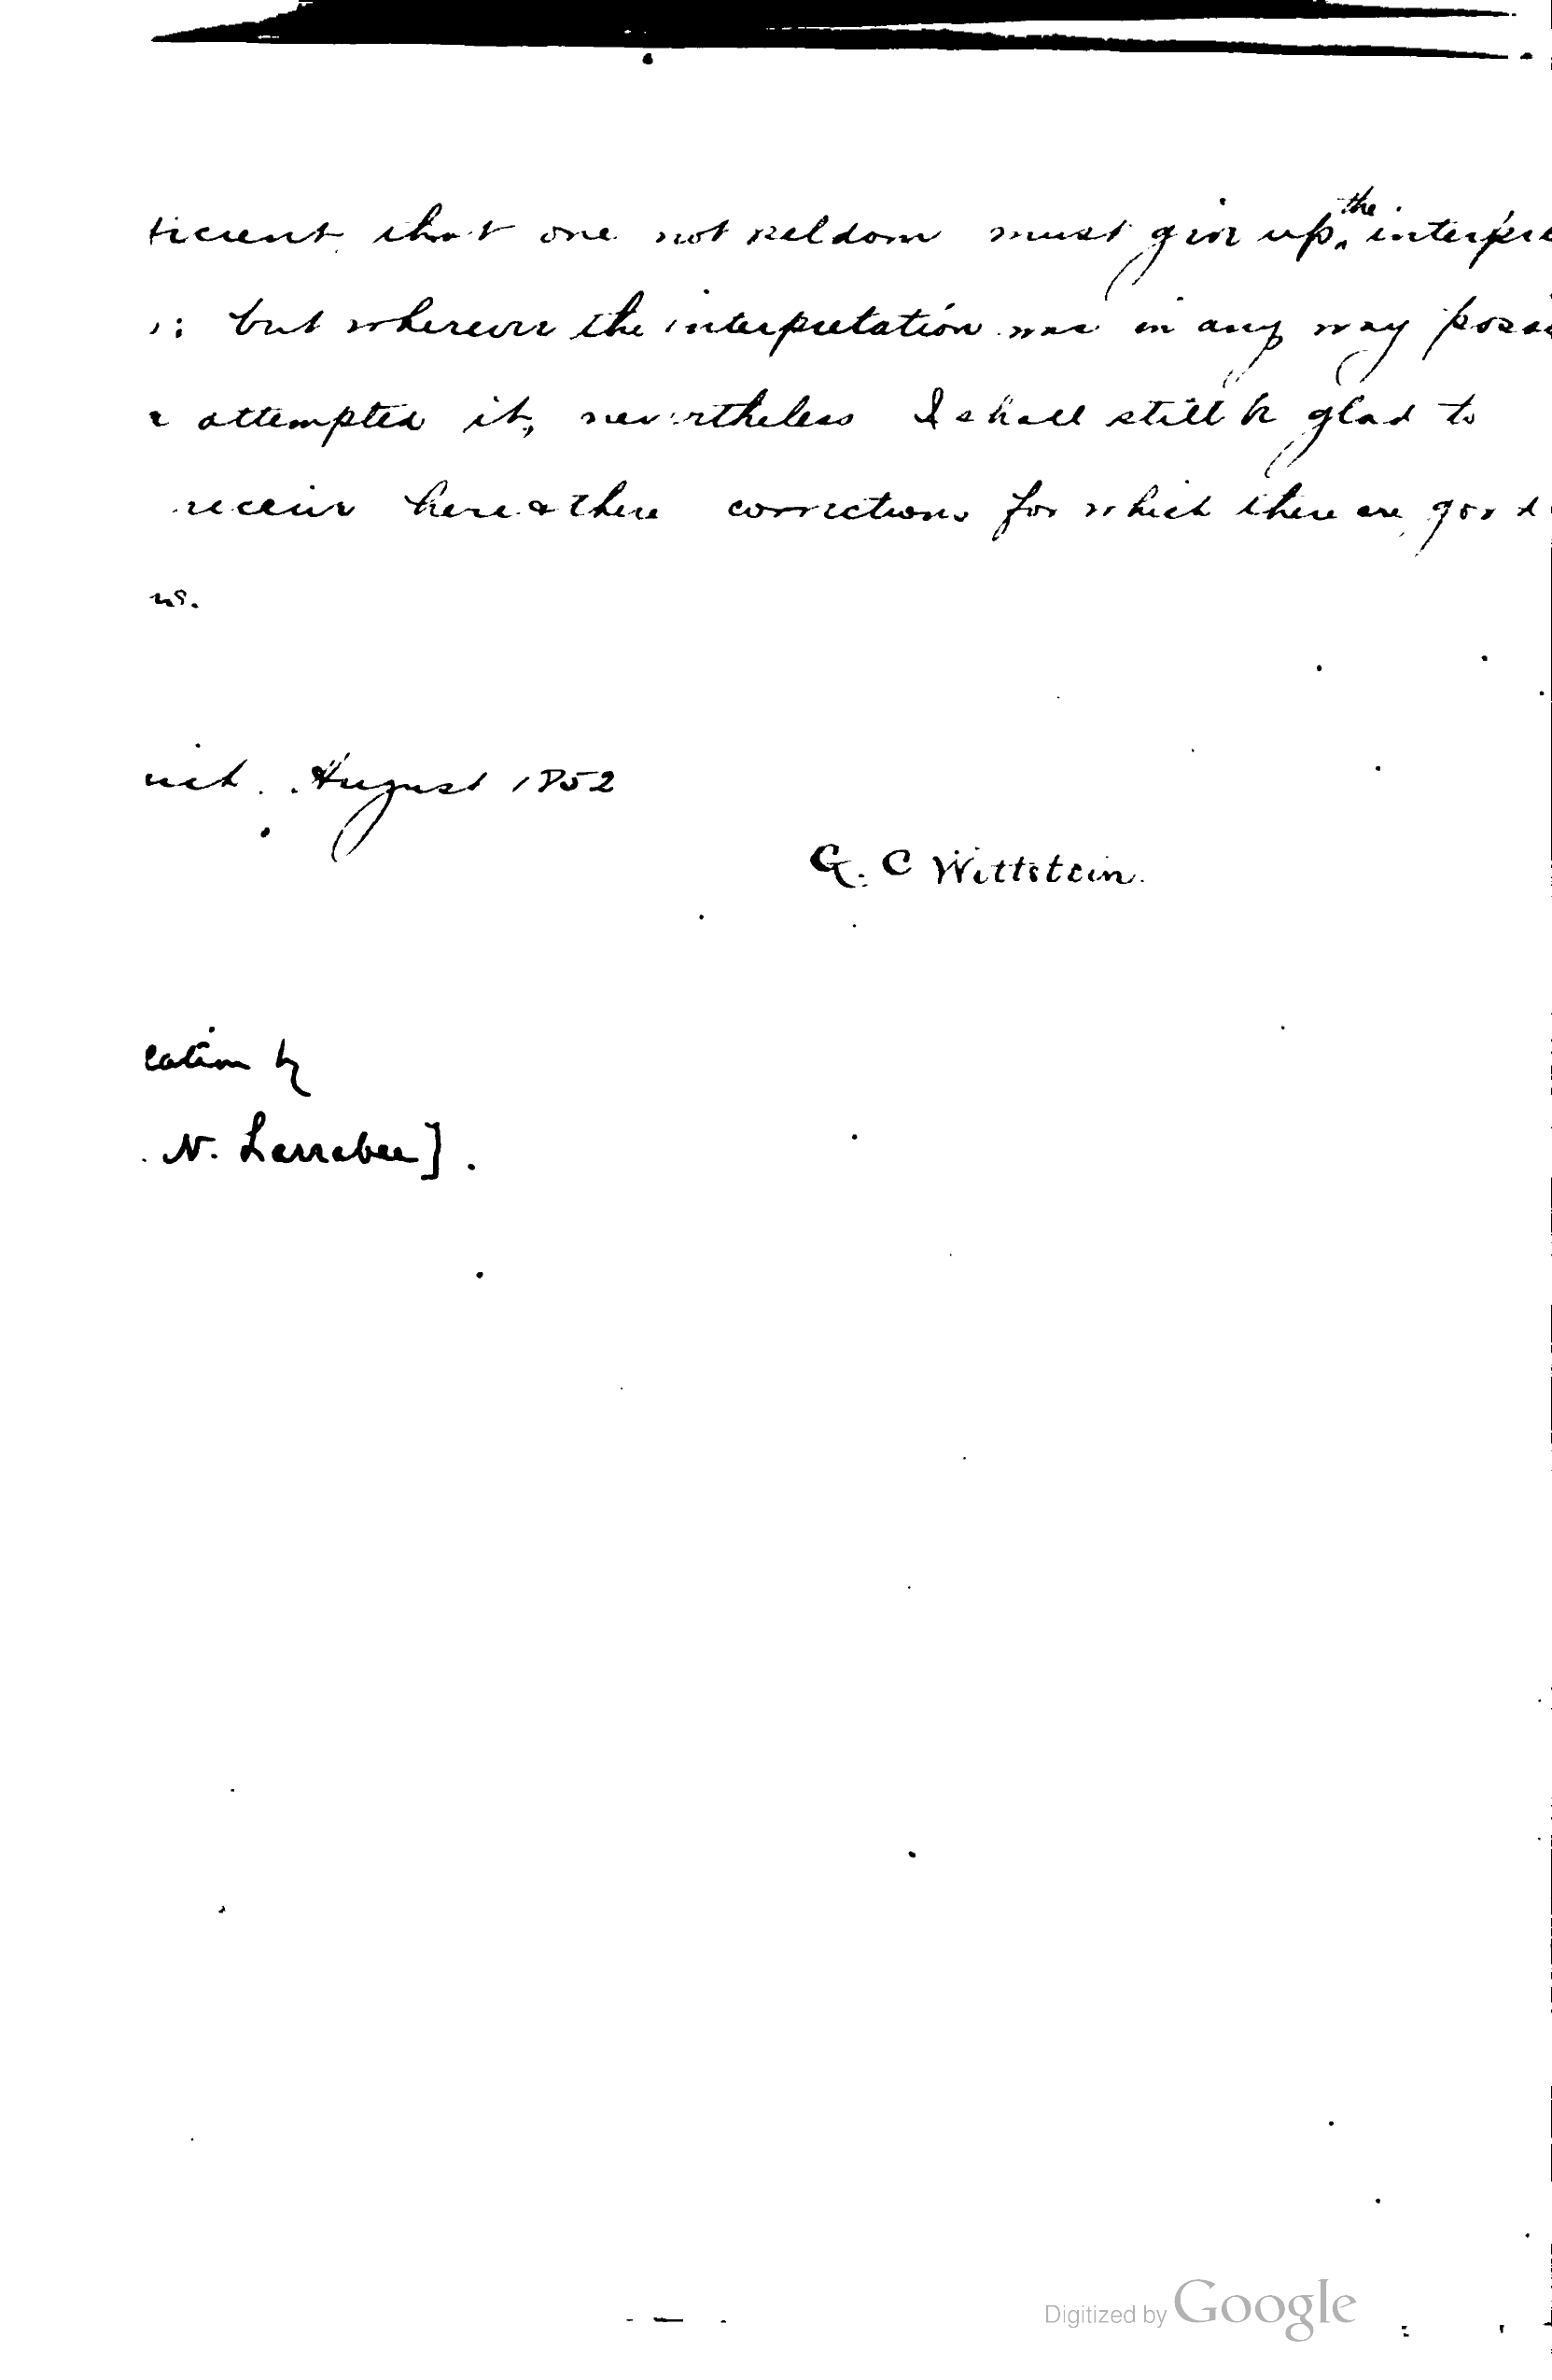 ficient that one not seldom must give up the interpre
s: but wherever the interpretation was in any way possi
e attempted it, nevertheless I shall still be glad to
receive here & there corrections for which there are good
ns.
nich. August 1852
G. C Wittstein.
lation by
. N. Larrabee].
Digitized by Google